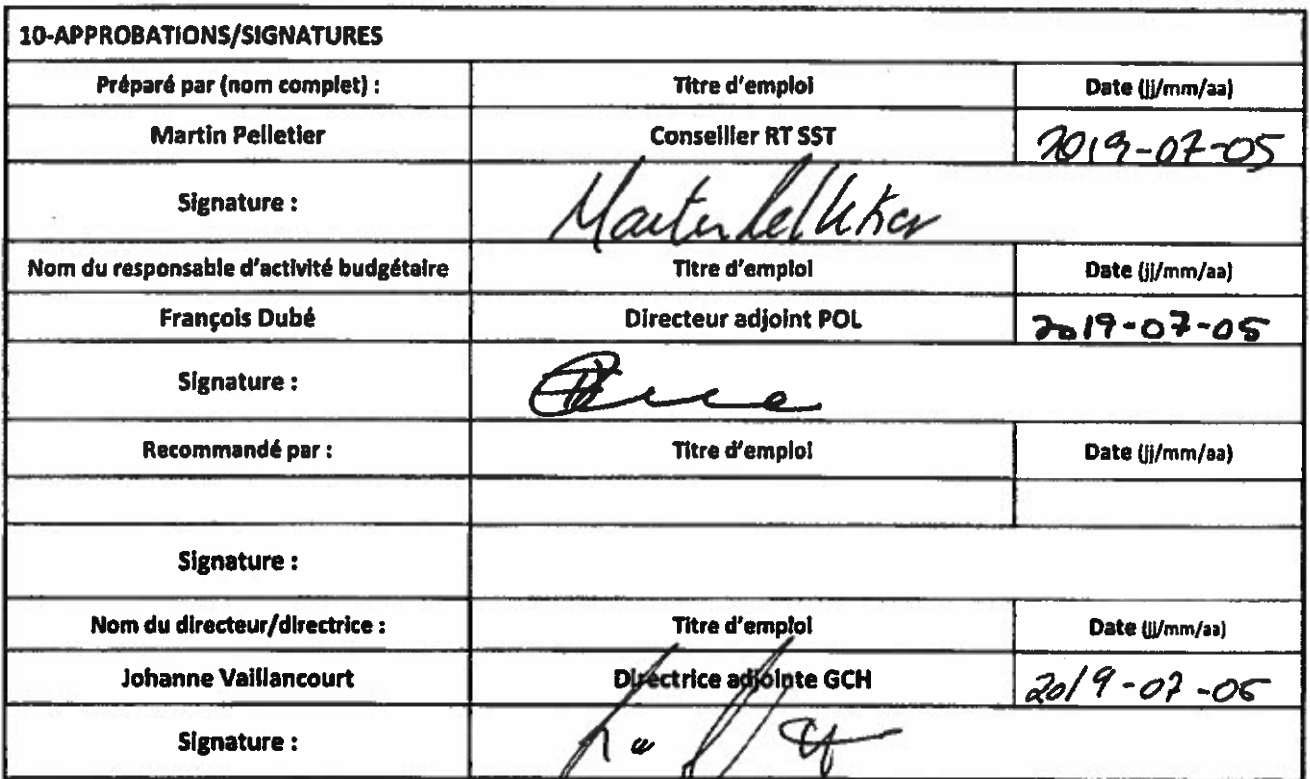 10-APPROBATIONS/SIGNATURES
Préparé par (nom complet) : Titre d'emploi Date (jj/mm/aa)
Martin Pelletier Conseiller RT SST 2019-07-05
Signature : Martin Pelletier
Nom du responsable d'activité budgétaire Titre d'emploi Date (jj/mm/aa)
François Dubé Directeur adjoint POL 2019-07-05
Signature :
Recommandé par : Titre d'emploi Date (jj/mm/aa)
Signature :
Nom du directeur/directrice : Titre d'emploi Date (jj/mm/aa)
Johanne Vaillancourt Directrice adjointe GCH 2019-07-05
Signature :